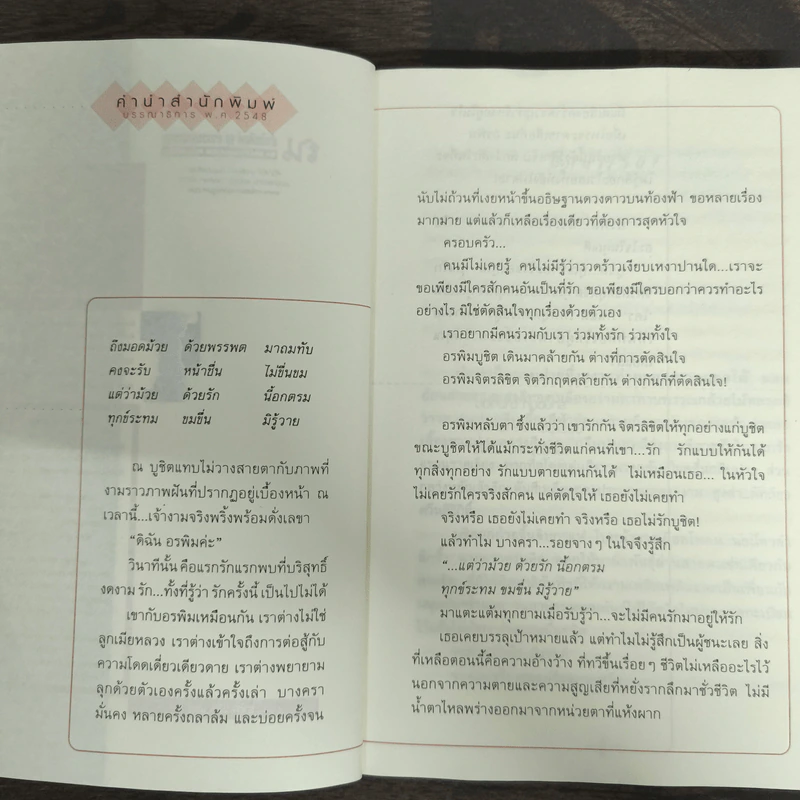 คำนำสำนักพิมพ์
บรรณาธิการ พ.ศ.2548
ถึงมอดม้วย ด้วยพรรพต มาถมทับ
คงจะรับ หน้ายื่น ไม่ขื่นขม
แต่ว่าม้วย ด้วยรัก นี้อกตรม
ทุกข์ระทม ขมขื่น มิรู้วาย
ณ บูชิตแทบไม่วางสายตากับภาพที่
งามราวภาพฝันที่ปรากฏอยู่เบื้องหน้า ณ
เวลานี้...เจ้างามจริงพริ้งพร้อมดั่งเลขา
“ดิฉัน อรพิมค่ะ”
วินาทีนั้น คือแรกรักแรกพบที่บริสุทธิ์
งดงาม รัก...ทั้งที่รู้ว่า รักครั้งนี้ เป็นไปไม่ได้
เขากับอรพิมเหมือนกัน เราต่างไม่ใช่
ลูกเมียหลวง เราต่างเข้าใจถึงการต่อสู้กับ
ความโดดเดี่ยวเดียวดาย เราต่างพยายาม
ลุกด้วยตัวเองครั้งแล้วครั้งเล่า บางครา
มั่นคง หลายครั้งถลาล้ม และบ่อยครั้งจน
นับไม่ถ้วนที่เงยหน้าขึ้นอธิษฐานดวงดาวบนท้องฟ้า ขอหลายเรื่อง
มากมาย แต่แล้วก็เหลือเรื่องเดียวที่ต้องการสุดหัวใจ
ครอบครัว...
คนมีไม่เคยรู้ คนไม่มีรู้ว่ารวดร้าวเงียบเหงาปานใด...เราจะ
ขอเพียงมีใครสักคนอันเป็นที่รัก ขอเพียงมีใครบอกว่าควรทำอะไร
อย่างไร มิใช่ตัดสินใจทุกเรื่องด้วยตัวเอง
เราอยากมีคนร่วมกับเรา ร่วมทั้งรัก ร่วมทั้งใจ
อรพิมบูชิต เดินมาคล้ายกัน ต่างที่การตัดสินใจ
อรพิมจิตรลิขิต จิตวิกฤตคล้ายกัน ต่างกันก็ที่ตัดสินใจ!
อรพิมหลับตา ซึ้งแล้วว่า เขารักกัน จิตรลิขิตให้ทุกอย่างแก่บูชิต
ขณะบูชิตให้ได้แม้กระทั่งชีวิตแก่คนที่เขา...รัก รักแบบให้กันได้
ทุกสิ่งทุกอย่าง รักแบบตายแทนกันได้ ไม่เหมือนเธอ... ในหัวใจ
ไม่เคยรักใครจริงสักคน แค่ตัดใจให้ เธอยังไม่เคยทำ
จริงหรือ เธอยังไม่เคยทำ จริงหรือ เธอไม่รักบูชิต!
แล้วทำไม บางครา...รอยจางๆ ในใจจึงรู้สึก
“...แต่ว่าม้วย ด้วยรัก นี้อกตรม
ทุกข์ระทม ขมขื่น มิรู้วาย”
มาแตะแต้มทุกยามเมื่อรับรู้ว่า...จะไม่มีคนรักมาอยู่ให้รัก
เธอเคยบรรลุเป้าหมายแล้ว แต่ทำไมไม่รู้สึกเป็นผู้ชนะเลย สิ่ง
ที่เหลือตอนนี้คือความอ้างว้าง ที่ทวีขึ้นเรื่อยๆ ชีวิตไม่เหลืออะไรไว้
นอกจากความตายและความสูญเสียที่หยั่งรากลึกมาชั่วชีวิต ไม่มี
น้ำตาไหลพร่างออกมาจากหน่วยตาที่แห้งผาก